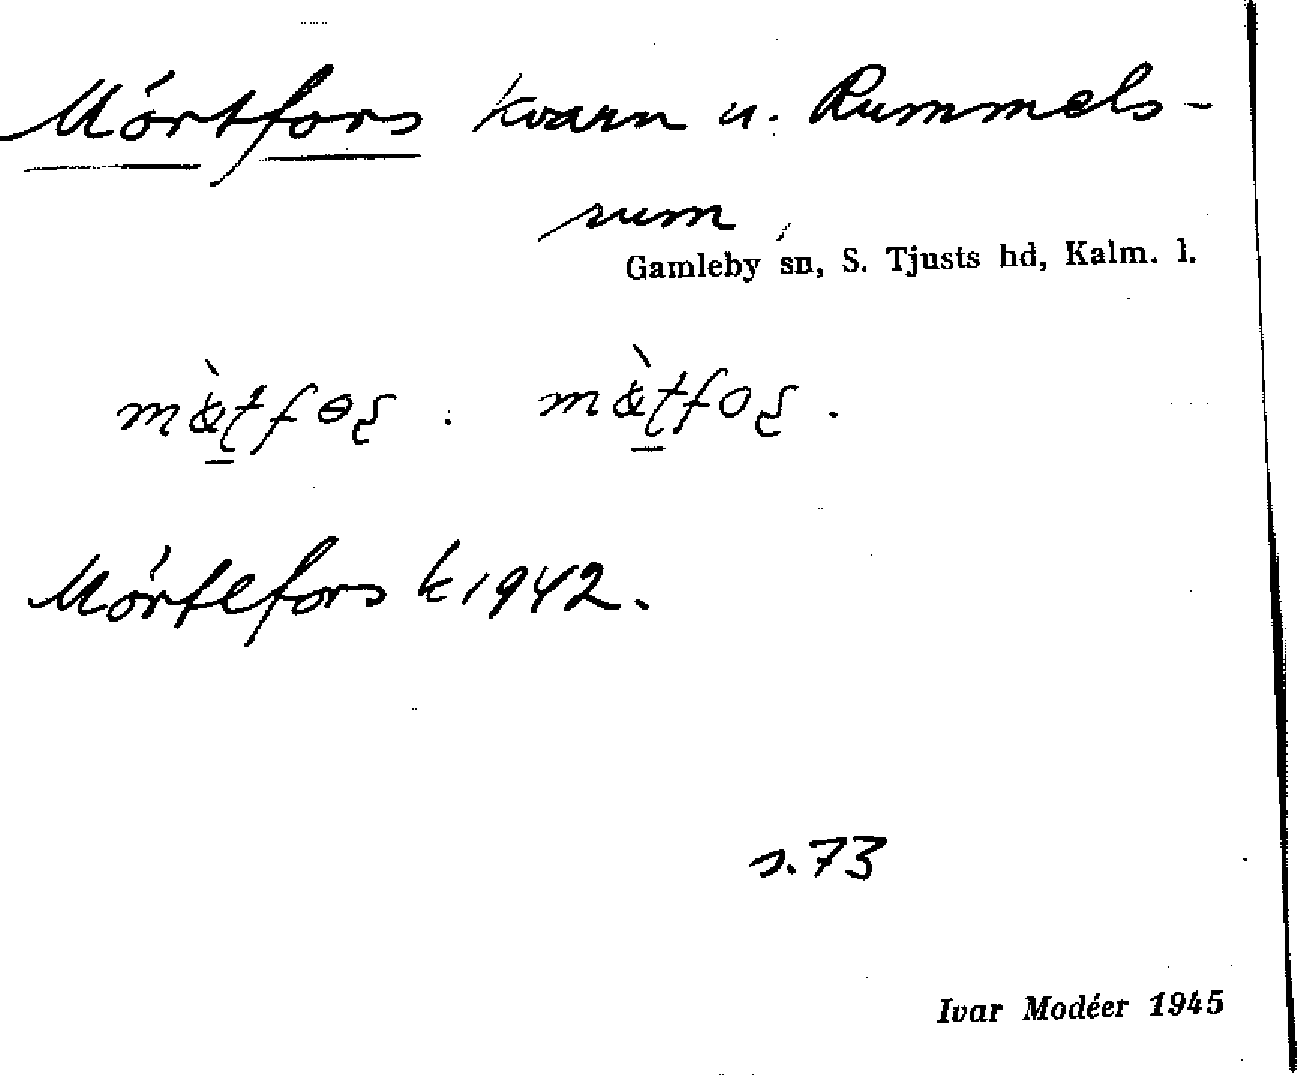 Mörtfors kvarn u. Rummels-
rum,
Gamleby sn, S. Tjusts hd, Kalm. l.
Mörtefors k 1942.
s. 73
Ivar Modéer 1945